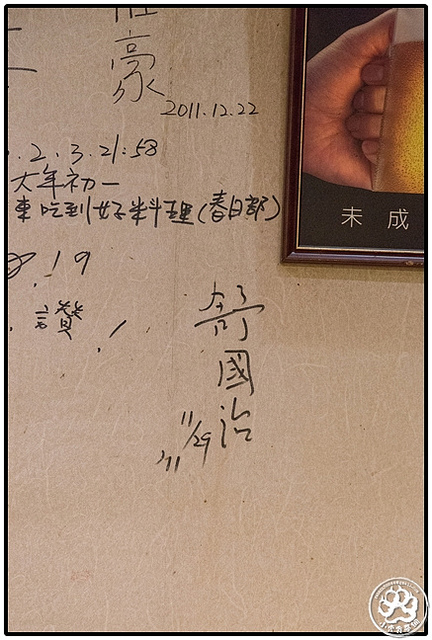 豪
2011.12.22
.2.3.21:58
大年初一
來吃到好料理(春日部)
.19
讚!
舒國治
11/29
'11
未成